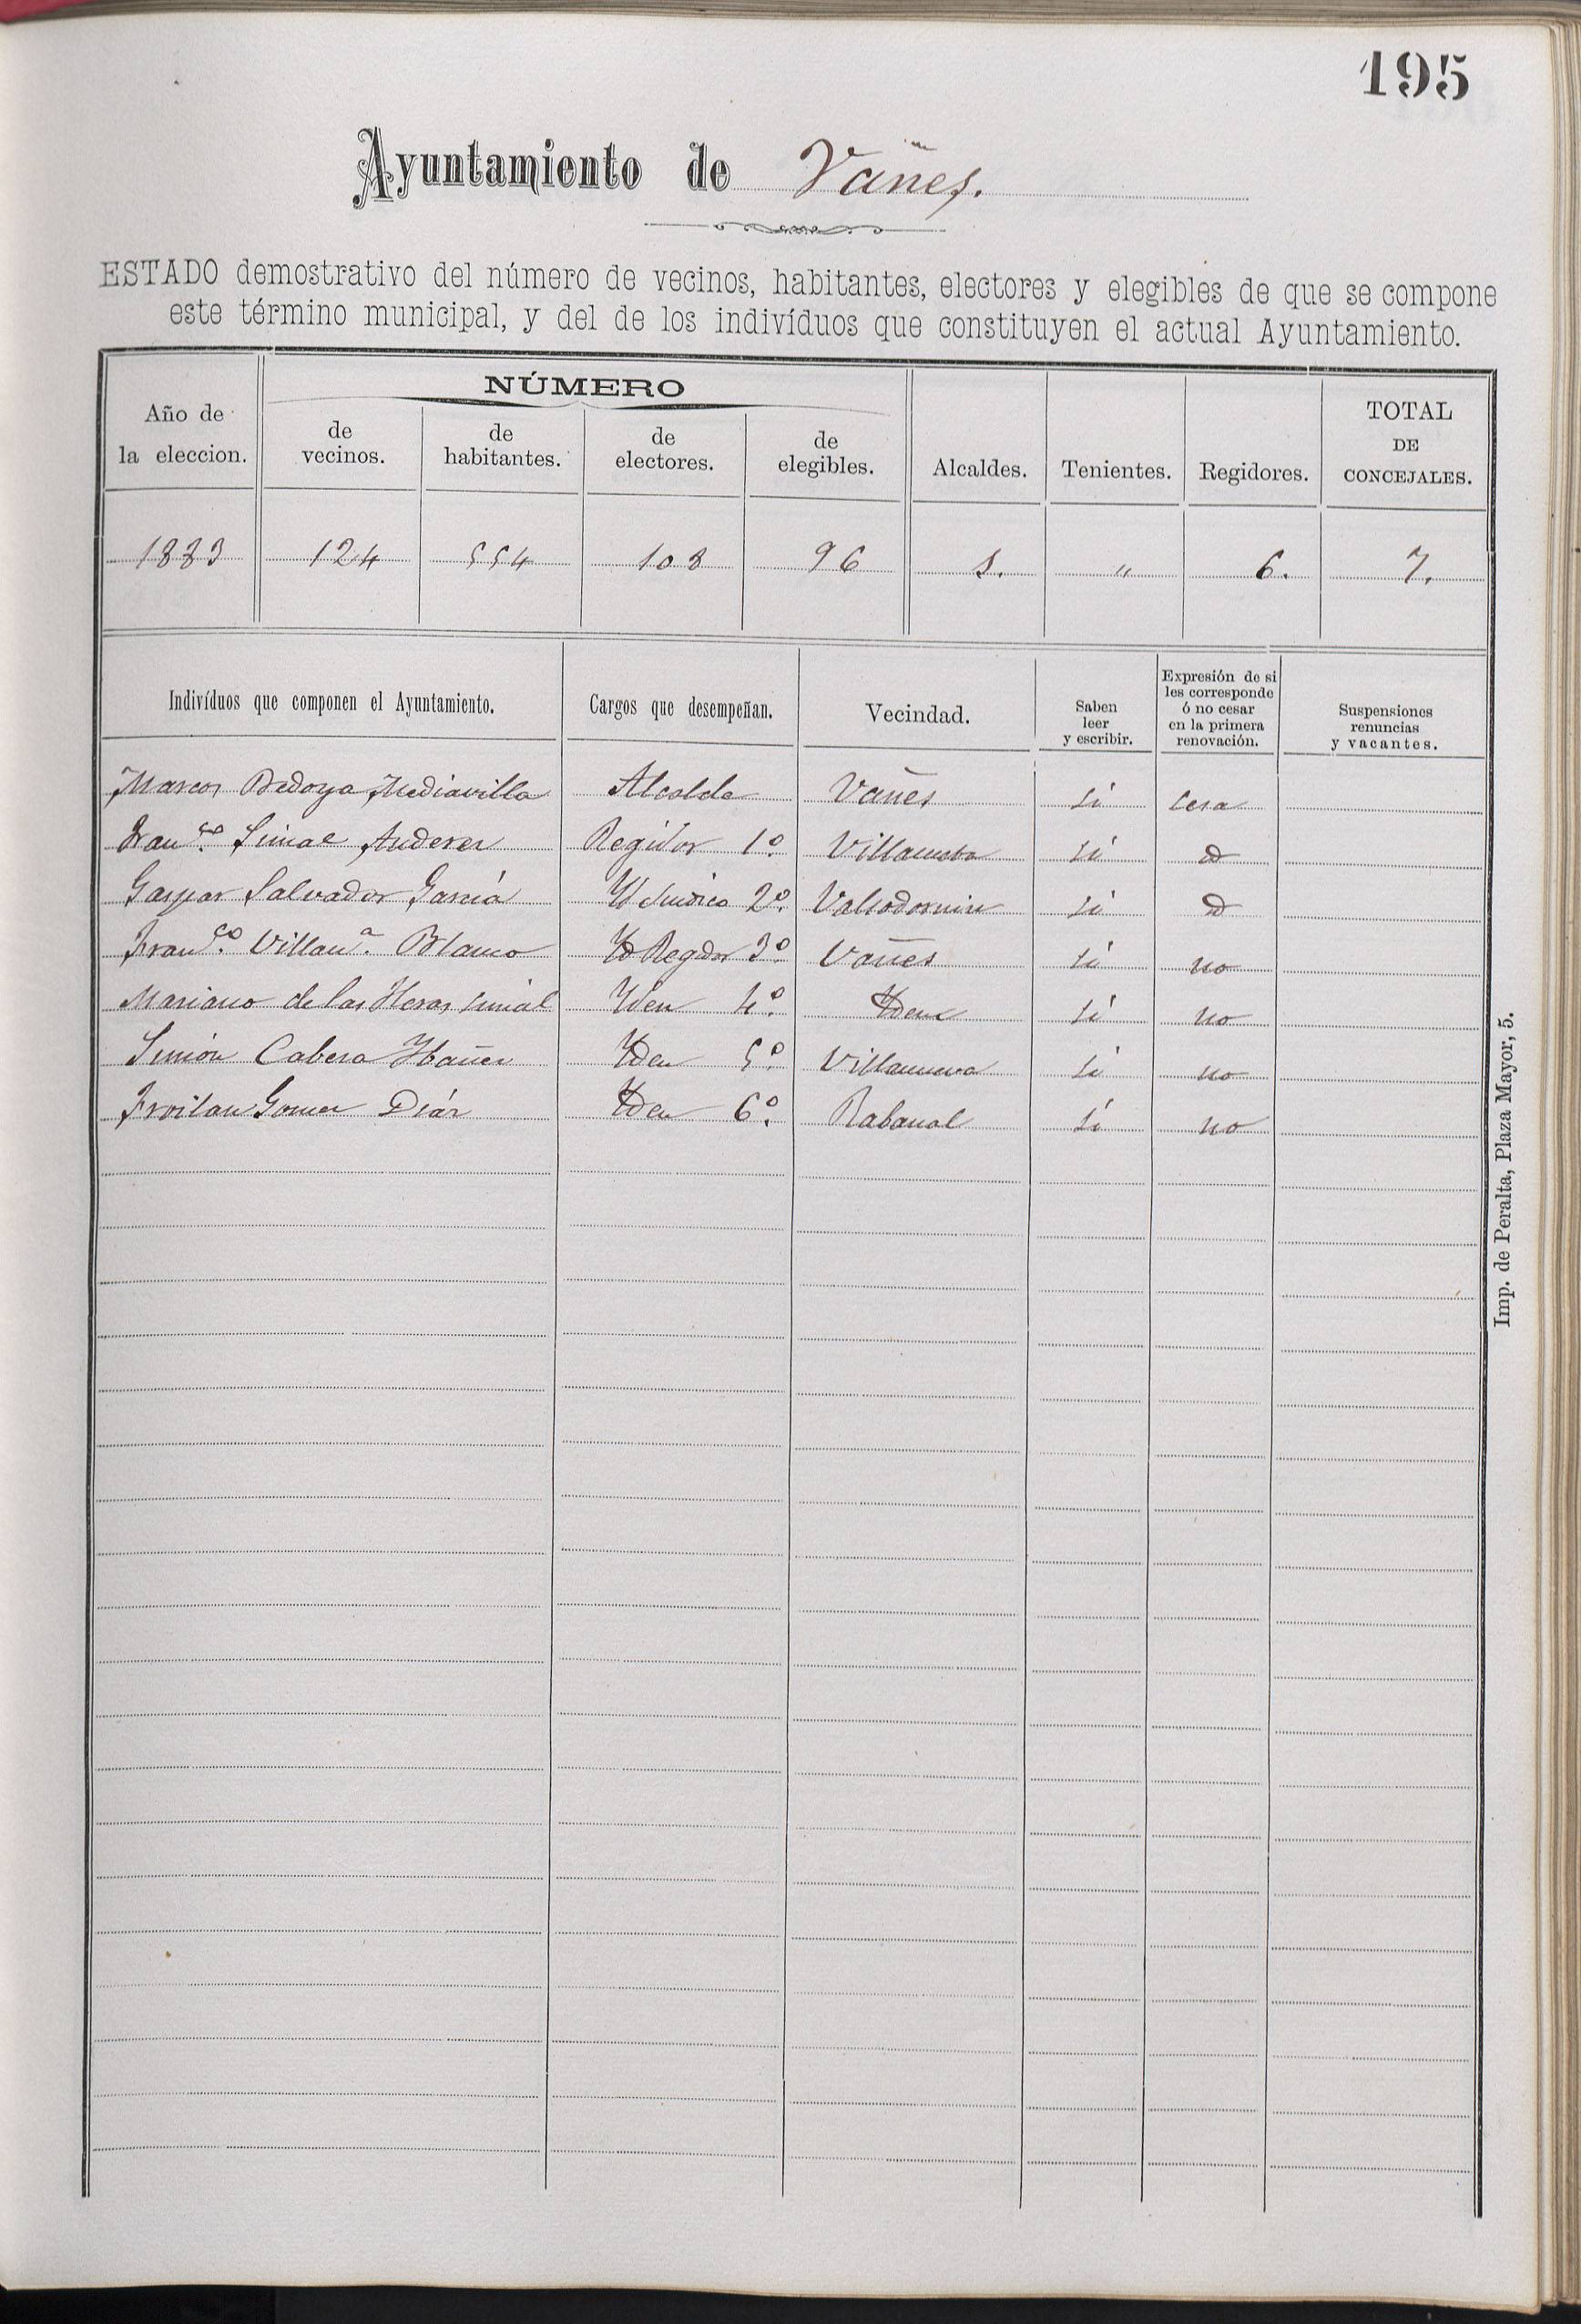 195
Ayuntamiento de Vañes.
ESTADO demostrativo del número de vecinos, habitantes, electores y elegibles de que se compone
este término municipal, y del de los indivíduos que constituyen el actual Ayuntamiento.
Año de la eleccion. NÚMERO de vecinos. de habitantes. de electores. de elegibles. Alcaldes. Tenientes. Regidores. TOTAL DE CONCEJALES.
1883 124 554 108 96 1. " 6. 7.
Indivíduos que componen el Ayuntamiento. Cargos que desempeñan. Vecindad. Saben leer y escribir. Expresión de si les corresponde ó no cesar en la primera renovación. Suspensiones renuncias y vacantes.
Marcos Bedoya Mediavilla Alcalde Vañes si cesa
Franco. Simal Regidor 1º. Villanueba si id
Gaspar Salvador García Id Sindico 2º. Valsadornin si id
Franco. Villana. Blanco Id Regidor 3º Vañes si no
Mariano de las Heras Simal Iden 4º. Idem si no
Simón Cabeza Ibañez Iden 5º. Villanueva si no
Froilan Gomez Diáz Iden 6º. Rabanal si no
Imp. de Peralta, Plaza Mayor, 5.